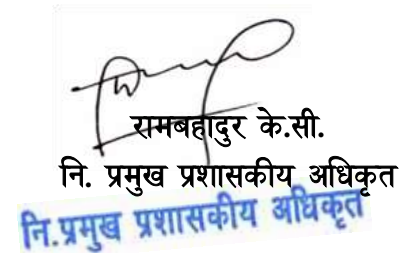 रामबहादुर के.सी.
नि. प्रमुख प्रशासकीय अधिकृत
नि.प्रमुख प्रशासकीय अधिकृत